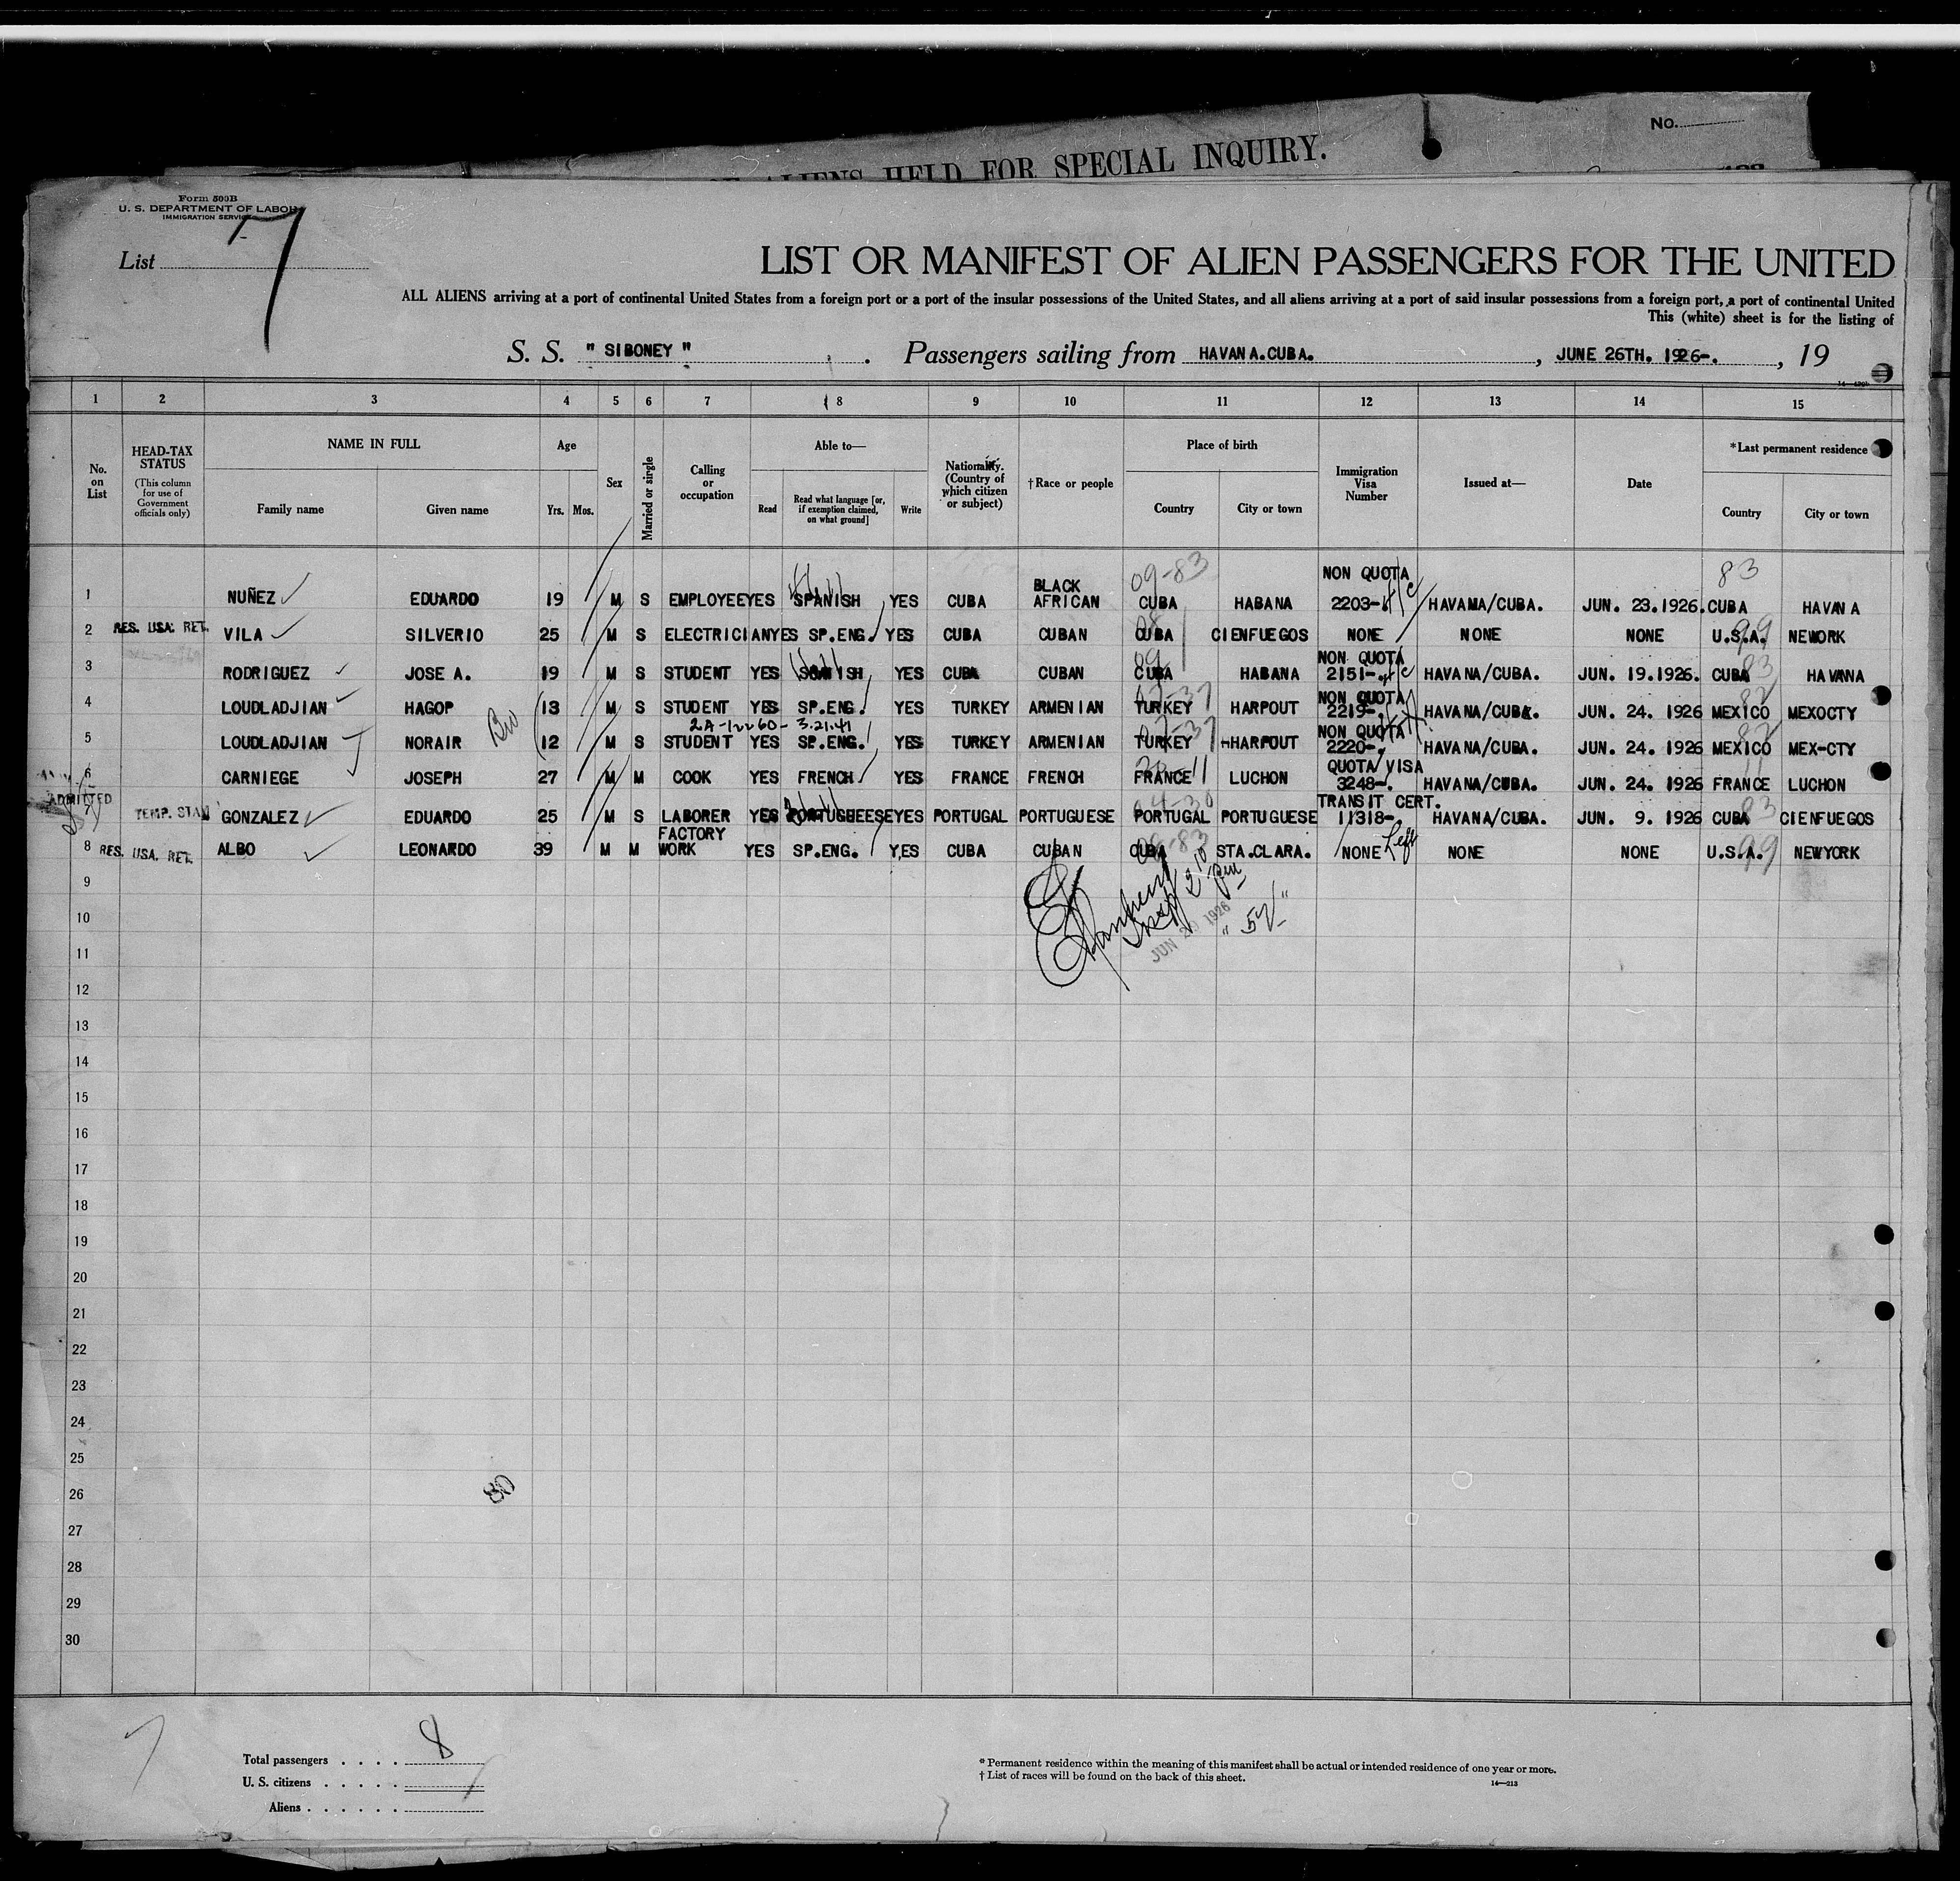 No.
ALIENS HELD FOR SPECIAL INQUIRY.
Form 500B
U. S. DEPARTMENT OF LABOR
IMMIGRATION SERVICE
List 7
LIST OR MANIFEST OF ALIEN PASSENGERS FOR THE UNITED
ALL ALIENS arriving at a port of continental United States from a foreign port or a port of the insular possessions of the United States, and all aliens arriving at a port of said insular possessions from a foreign port, a port of continental United
This (white) sheet is for the listing of
S. S. " SIBONEY " Passengers sailing from HAVANA.CUBA. , JUNE 26TH. 1926-. , 19
1 2 3 4 5 6 7 8 9 10 11 12 13 14 15
No. on List
HEAD-TAX STATUS (This column for use of Government officials only)
NAME IN FULL
Family name Given name
Age
Yrs. Mos.
Sex
Married or single
Calling or occupation
Able to—
Read Read what language [or, if exemption claimed, on what ground] Write
Nationality. (Country of which citizen or subject)
†Race or people
Place of birth
Country City or town
Immigration Visa Number
Issued at—
Date
*Last permanent residence
Country City or town
09-83 NON QUOTA 83
1 NUÑEZ EDUARDO 19 M S EMPLOYEE YES SPANISH YES CUBA BLACK AFRICAN CUBA HABANA 2203- HAVANA/CUBA. JUN. 23.1926. CUBA HAVANA
2 RES. USA. RET. VILA SILVERIO 25 M S ELECTRICIAN YES SP.ENG. YES CUBA CUBAN CUBA CIENFUEGOS NONE NONE NONE U.S.A. NEWORK
3 RODRIGUEZ JOSE A. 19 M S STUDENT YES SPANISH YES CUBA CUBAN CUBA HABANA NON QUOTA 2151- HAVANA/CUBA. JUN. 19.1926. CUBA HAVANA
4 LOUDLADJIAN HAGOP 13 M S STUDENT YES SP.ENG. YES TURKEY ARMENIAN TURKEY HARPOUT NON QUOTA 2219-. HAVANA/CUBA. JUN. 24. 1926 MEXICO MEXOCTY
2A-12260-3.21.41
5 LOUDLADJIAN NORAIR 12 M S STUDENT YES SP.ENG. YES TURKEY ARMENIAN TURKEY HARPOUT NON QUOTA 2220- HAVANA/CUBA. JUN. 24. 1926 MEXICO MEX-CTY
6 CARNIEGE JOSEPH 27 M M COOK YES FRENCH YES FRANCE FRENCH FRANCE LUCHON QUOTA VISA 3248-. HAVANA/CUBA. JUN. 24. 1926 FRANCE LUCHON
ADMITTED
7 TEMP. STAY GONZALEZ EDUARDO 25 M S LABORER YES PORTUGUEESE YES PORTUGAL PORTUGUESE PORTUGAL PORTUGUESE TRANSIT CERT. 11318- HAVANA/CUBA. JUN. 9. 1926 CUBA CIENFUEGOS
8 RES. USA. RET. ALBO LEONARDO 39 M M FACTORY WORK YES SP.ENG. YES CUBA CUBAN CUBA STA.CLARA. NONE NONE NONE U.S.A. NEWYORK
9
10
JUN 1926
11
12
13
14
15
16
17
18
19
20
21
22
23
24
25
26
80
27
28
29
30
7
Total passengers . . . . 8
U. S. citizens . . . . .
Aliens . . . . . .
* Permanent residence within the meaning of this manifest shall be actual or intended residence of one year or more.
† List of races will be found on the back of this sheet.
14—213